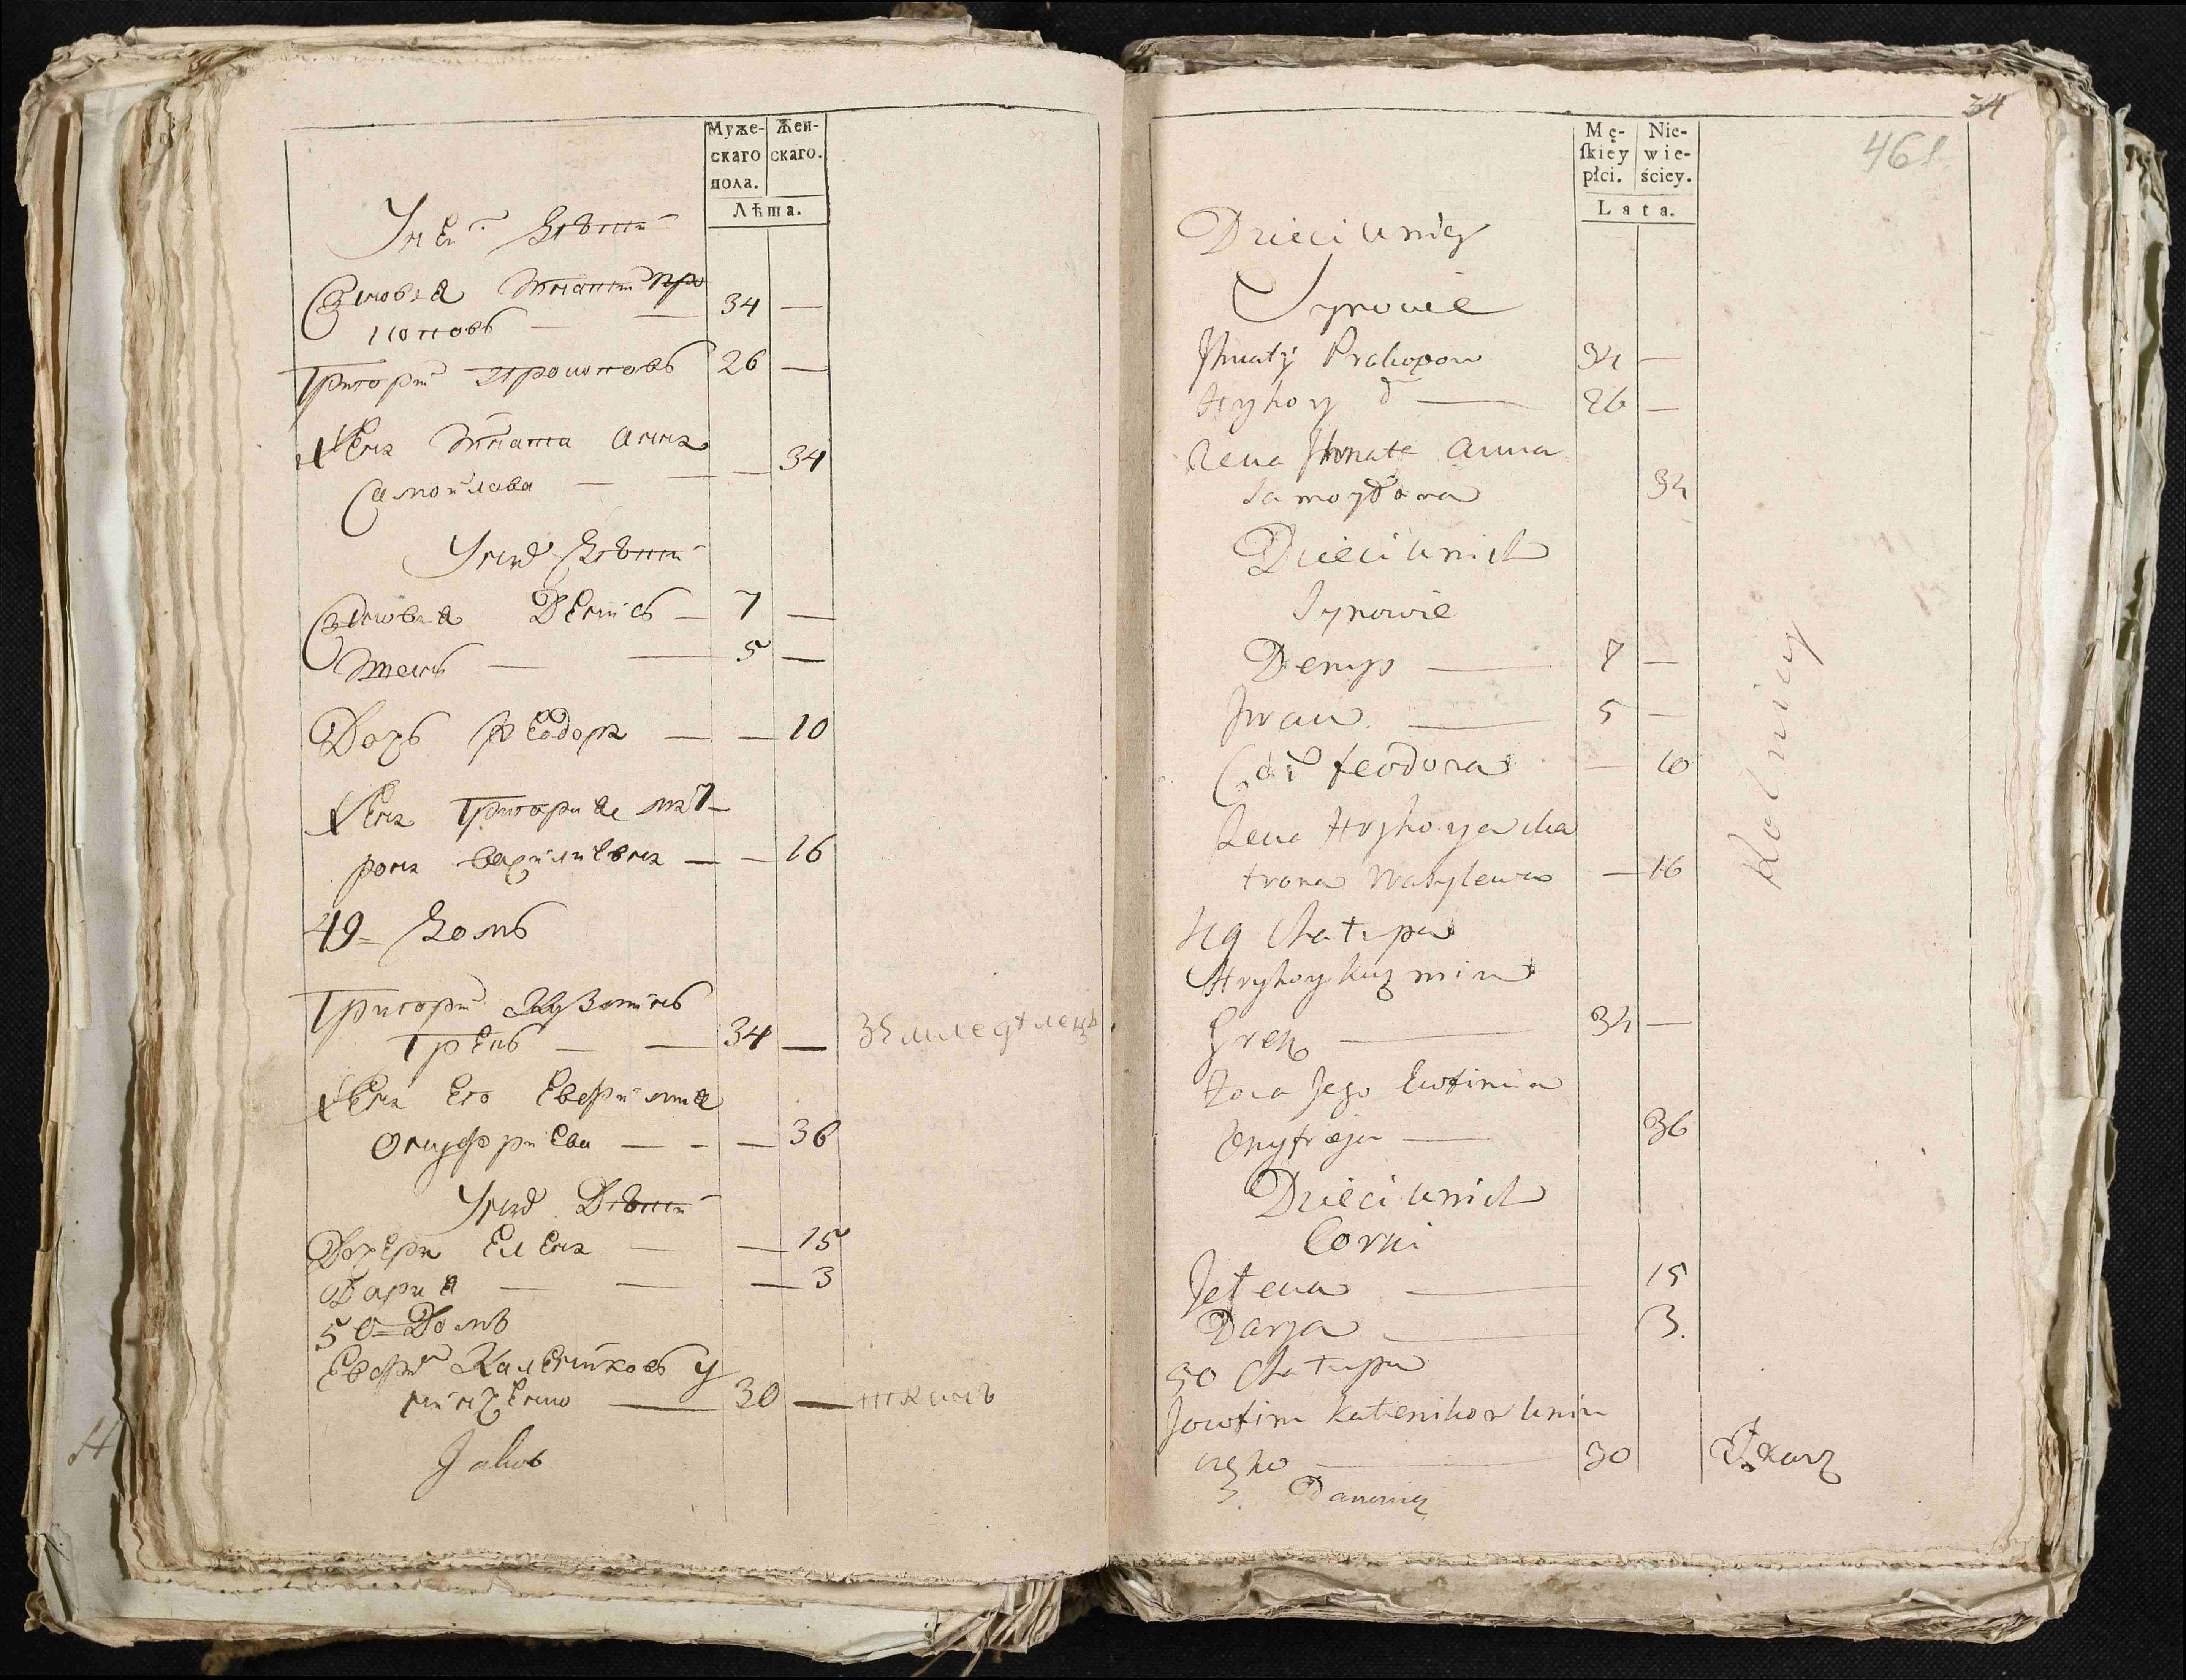 Муже-
скаго
пола.
Жен-
скаго.
Лѣта.
У неи дѣти
Сыновья Игнатъ Про
коповъ — 34 —
Григори Прокоповъ 26 —
Жена Игната Анна
Самойлова — — 34
У нихъ дѣти
Сыновья Денисъ — 7 —
Иванъ — 5 —
Дочь Феодора — — 10
Жена Григория Мат-
рона Василиевна — — 16
49 – Домъ
Григори Кузминъ
Грекъ — 34 — Земледѣлецъ
Жена его Евфимия
Онуфриева — — 36
У нихъ Дѣти
Дочери Елена — — 15
Дария — — 3
50 – Домъ
Евфи Калениковъ У
— 30 — ткачь
Jakob
34
461
Mę-
ſkiey
płci.
Nie-
wie-
ściey.
Lata.
Dzieci u niey
Synowie
Ihnaty Prokopow 34 —
Hryhory d — 26 —
Zena Ihnata Anna
Samoyłowa 34
Dzieci u nich
Synowie
Denys — 7 —
Iwan — 5 —
Feodora — 10
Zena Hryhorya Ma
trona Wasylewa — 16
49 Chałupa
Hryhory Kuzmin
Grek — 34 —
Żona Jego Ewfimia
Onyfreja — 36
Dzieci u nich
Corki
Jełena — 15
Darya — 3.
50 Chałupa
Jowfim Kalenikow Unin
czeho — 30 Tkacz
Rolniey